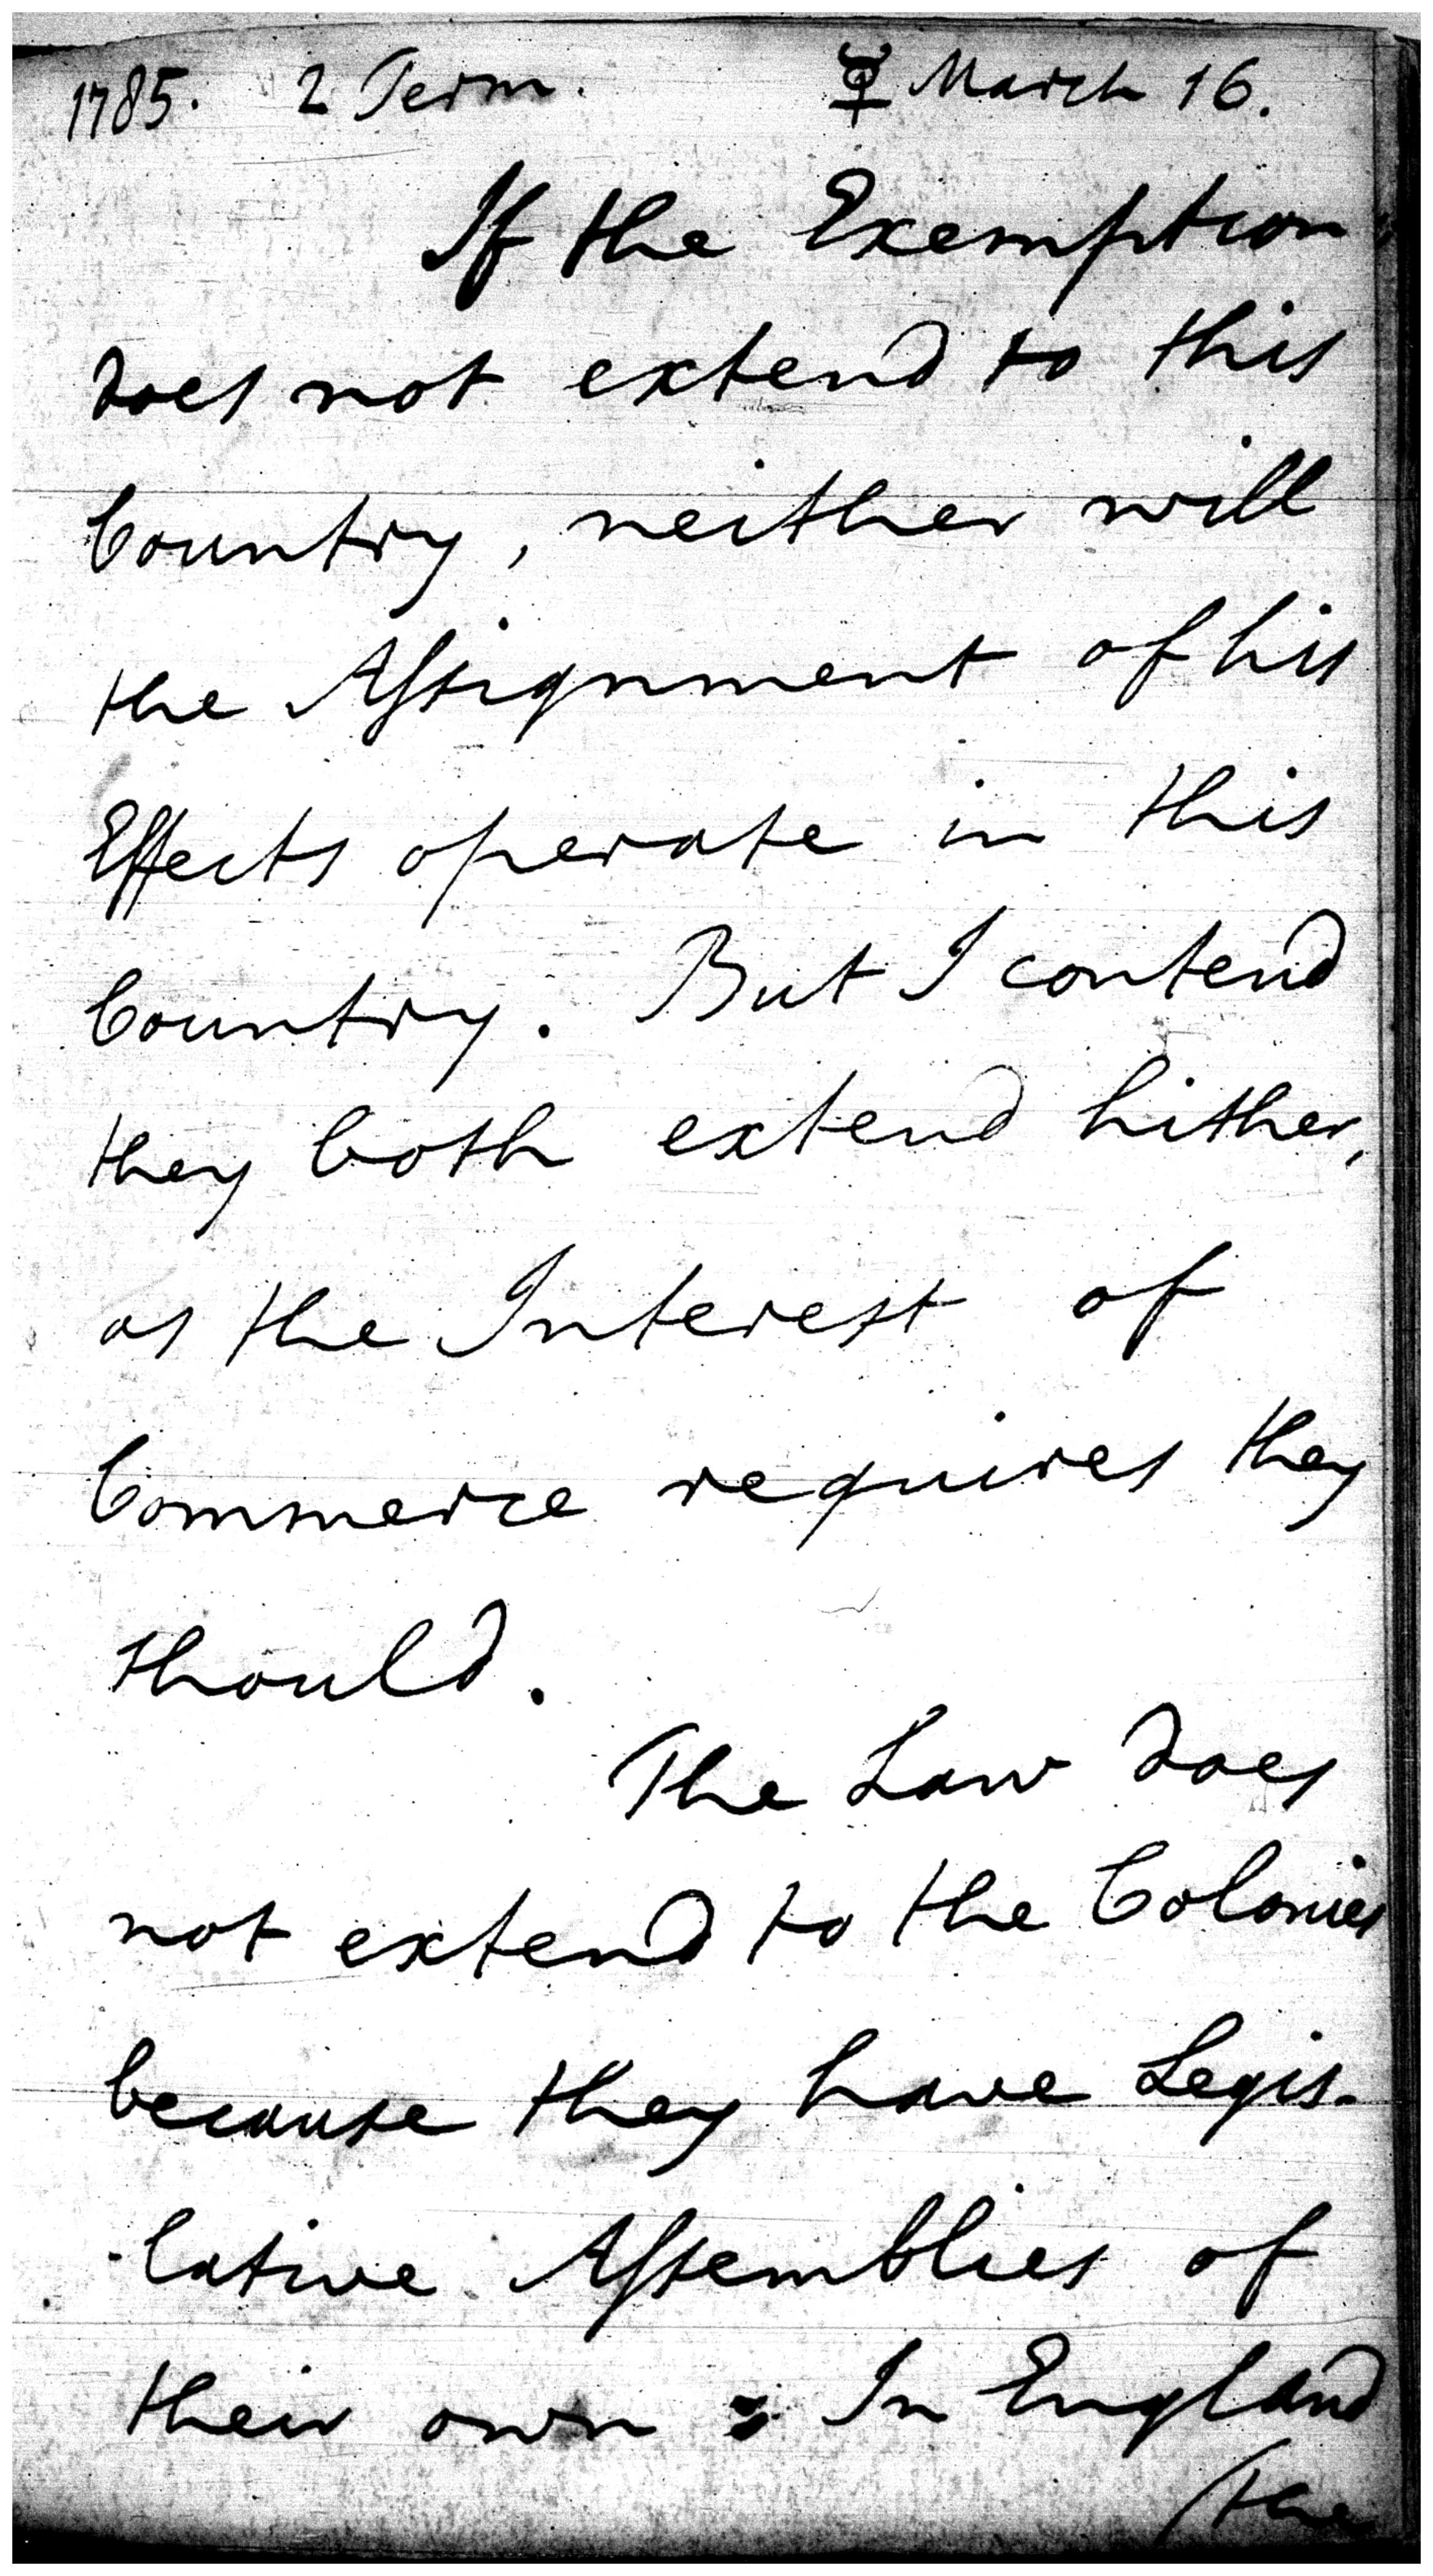 1785. 2 Term. ☿ March 16.
If the Exemption
does not extend to this
Country, neither will
the Assignment of his
Effects operate in this
Country. But I contend
they both extend hither,
as the Interest of
Commerce requires they
should.
The Law does
not extend to the Colonies
because they have Legis-
-lative Assemblies of
their own : In England
(the